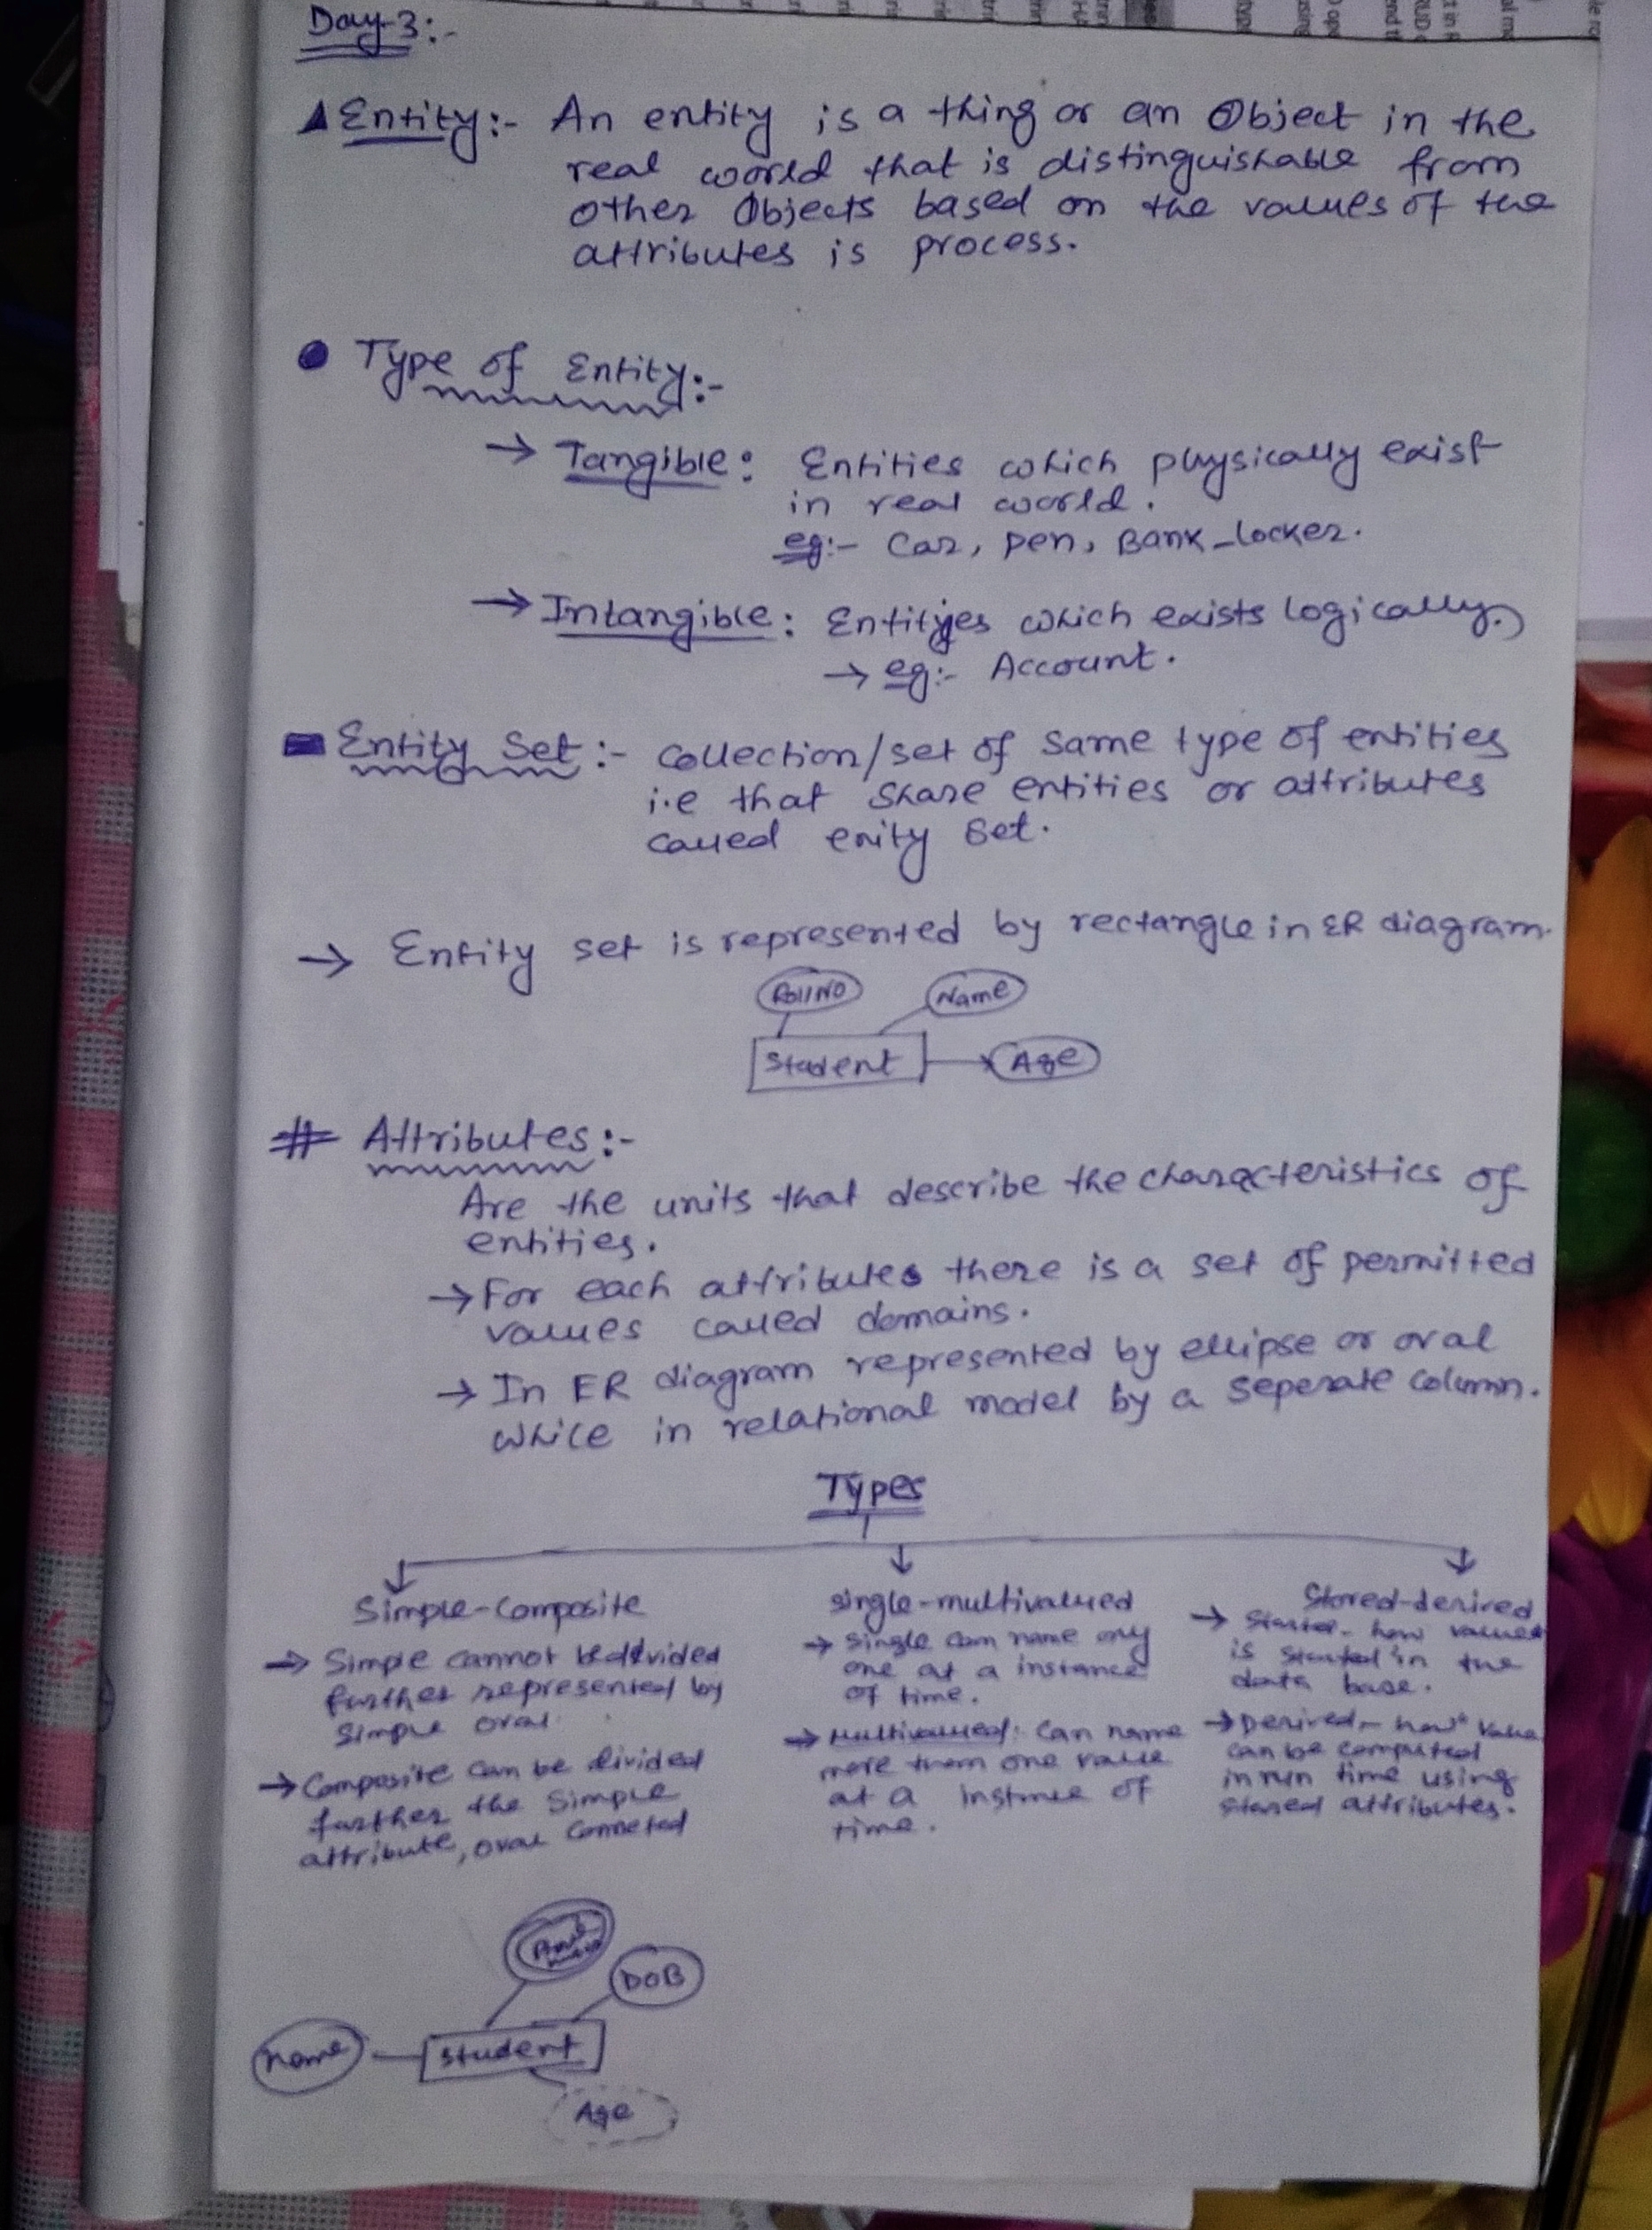 Day-3:-
Entity:- An entity is a thing or an Object in the
real world that is distinguishable from
other Objects based on the values of the
attributes is process.
Type of Entity:-
→ Tangible: Entities which physically exist
in real world.
eg:- Car, pen, Bank_locker.
→ Intangible: Entities which exists logically.
→ eg:- Account.
Entity Set:- collection/set of same type of entities
i.e that share entities or attributes
called enity set.
→ Entity set is represented by rectangle in ER diagram.
RollNo Name
Student Age
# Attributes:-
Are the units that describe the characteristics of
entities.
→ For each attributes there is a set of permitted
values called domains.
→ In ER diagram represented by ellipse or oval
while in relational model by a seperate column.
Types
Simple-Composite
→ Simple cannot be divided
further represented by
simple oval.
→ Composite can be divided
further the simple
attribute, oval conneted
single-multivalued
→ Single can name only
one at a instance
of time.
→ Multivalued: Can name
more than one value
at a instance of
time.
Stored-derived
→ how values
is in the
data base.
→ Derived- how value
can be computed
in run time using
stored attributes.
DOB
name Student
Age